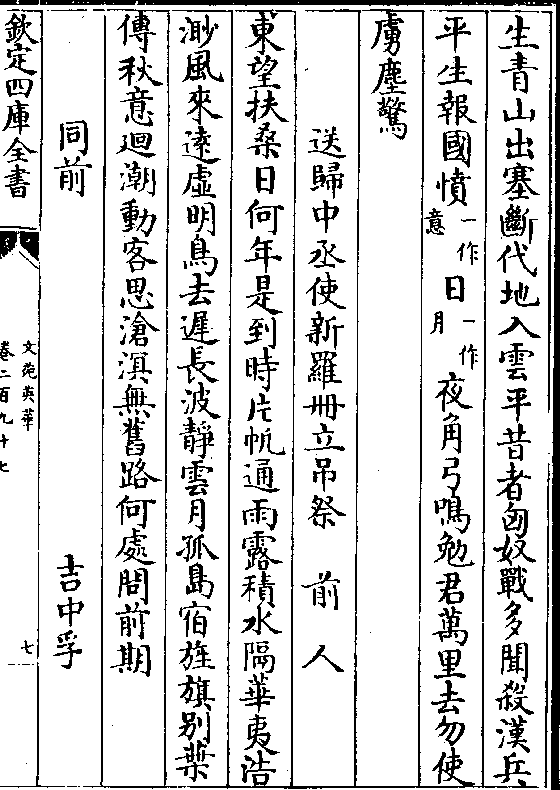 生青山出塞斷代地入雲平昔者匈奴戰多聞殺漢兵
平生報國憤一作意日一作月夜角弓鳴勉君萬里去勿使
虜塵驚
送歸中丞使新羅冊立吊祭 前人
東望扶桑日何年是到時片帆通雨露積水隔華夷浩
渺風來逺虛明鳥去遲長波靜雲月孤島宿旌旗别葉
傳秋意迴潮動客思滄溟無舊路何處問前期
同前 吉中孚
欽定四庫全書
文苑英華
卷二百九十七
七